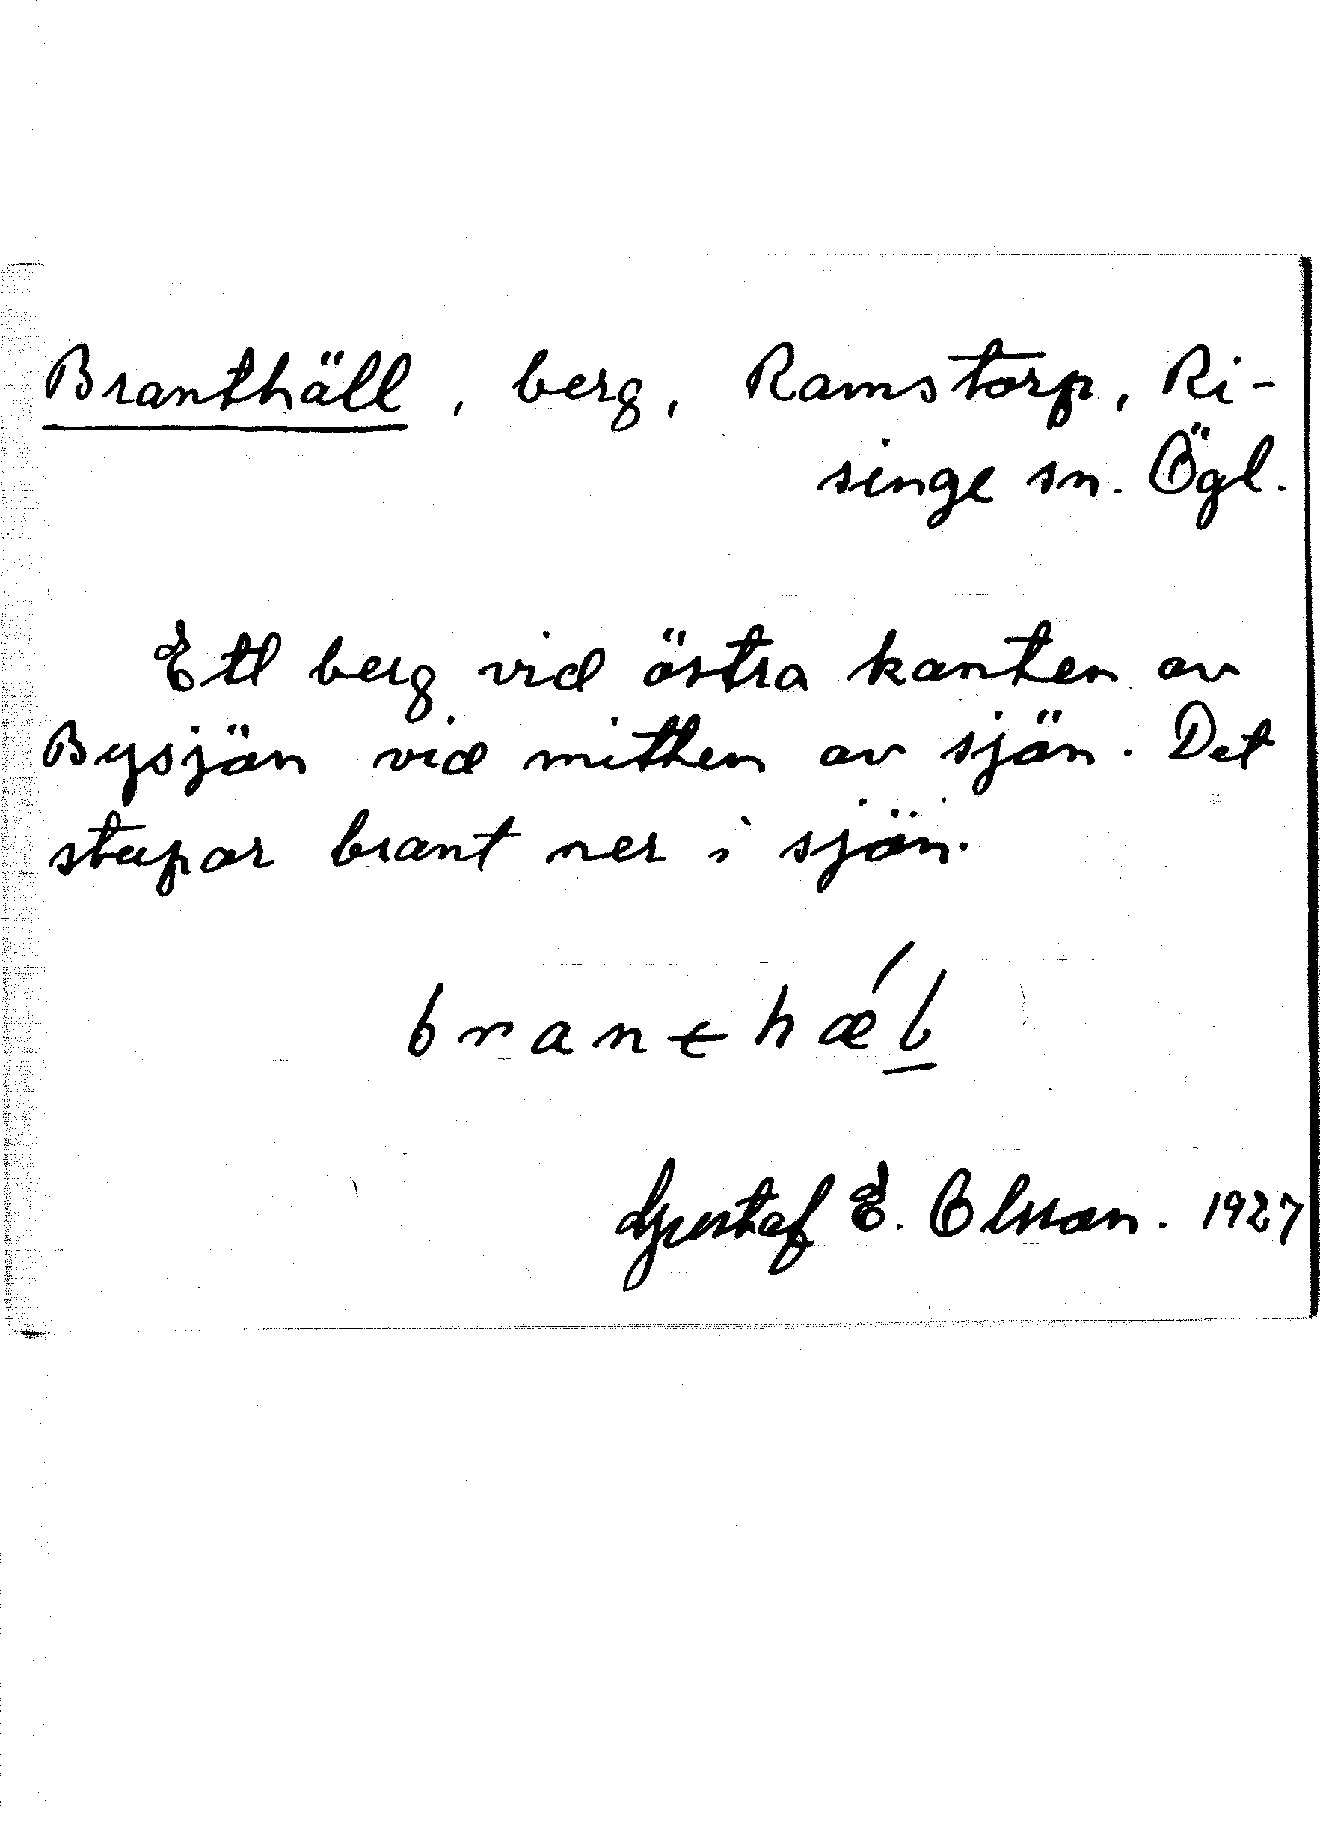 Branthäll, berg, Ramstorp, Ri-
singe sn. Ögl.
Ett berg vid östra kanten av
Bysjön vid mitten av sjön. Det
stupar brant ner i sjön.
brant hæ
Gustaf E. Olsson. 1927